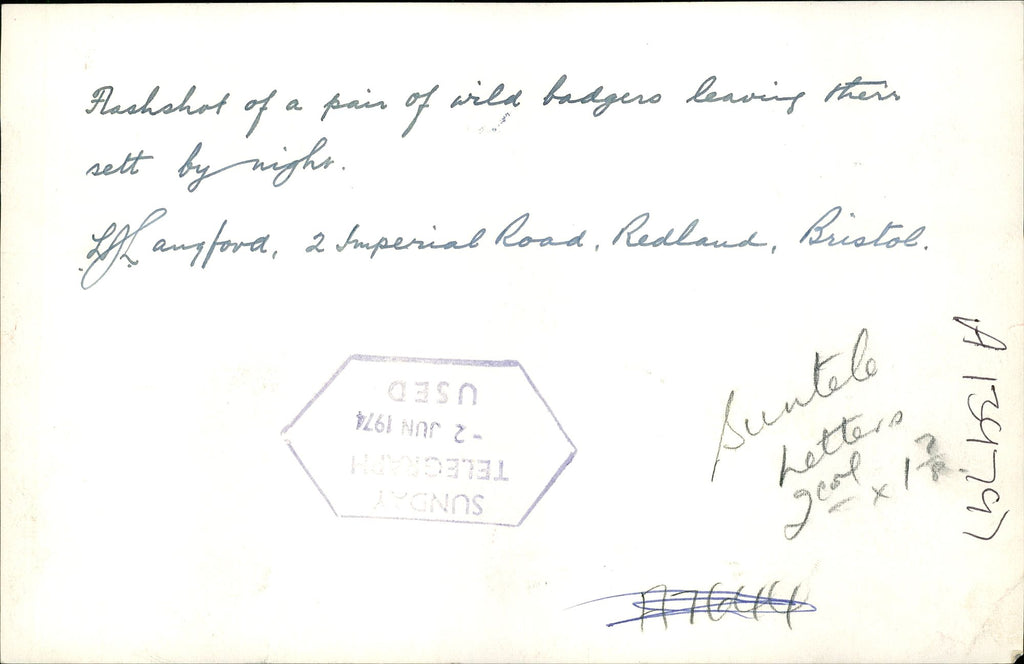 Flashshot of a pair of wild badgers leaving their
sett by night.
LJLangford, 2 Imperial Road, Redland, Bristol.
SUNDAY
TELEGRAPH
- 2 JUN 1974
USED
Suntele
Letters
2 col x 1 7/8
A 139797
A76444